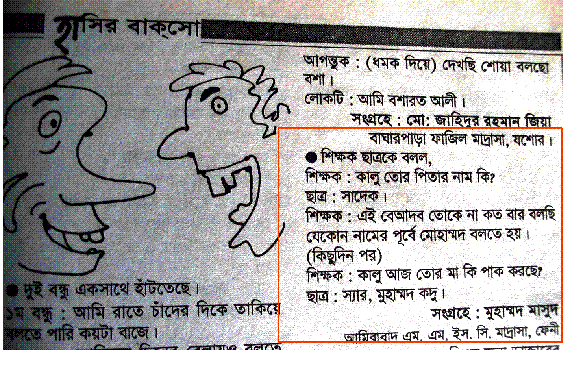 হাসির বাক্‌সো
আগন্তুক : (ধমক দিয়ে) দেখছি শোয়া বলছো
বশা।
লোকটি : আমি বশারত আলী।
সংগ্রহে : মো: জাহিদুর রহমান জিয়া
বাঘারপাড়া ফাজিল মাদ্রাসা, যশোর।
● শিক্ষক ছাত্রকে বলল,
শিক্ষক : কালু তোর পিতার নাম কি?
ছাত্র : সাদেক।
শিক্ষক : এই বেআদব তোকে না কত বার বলছি
যেকোন নামের পূর্বে মোহাম্মদ বলতে হয়।
(কিছুদিন পর)
শিক্ষক : কালু আজ তোর মা কি পাক করছে?
ছাত্র : স্যার, মুহাম্মদ কদু।
সংগ্রহে : মুহাম্মদ মাসুদ
আমিরাবাদ এম, এম, ইস. সি. মাদ্রাসা, ফেনী
● দুই বন্ধু একসাথে হাঁটতেছে।
১ম বন্ধু : আমি রাতে চাঁদের দিকে তাকিয়ে
বলতে পারি কয়টা বাজে।